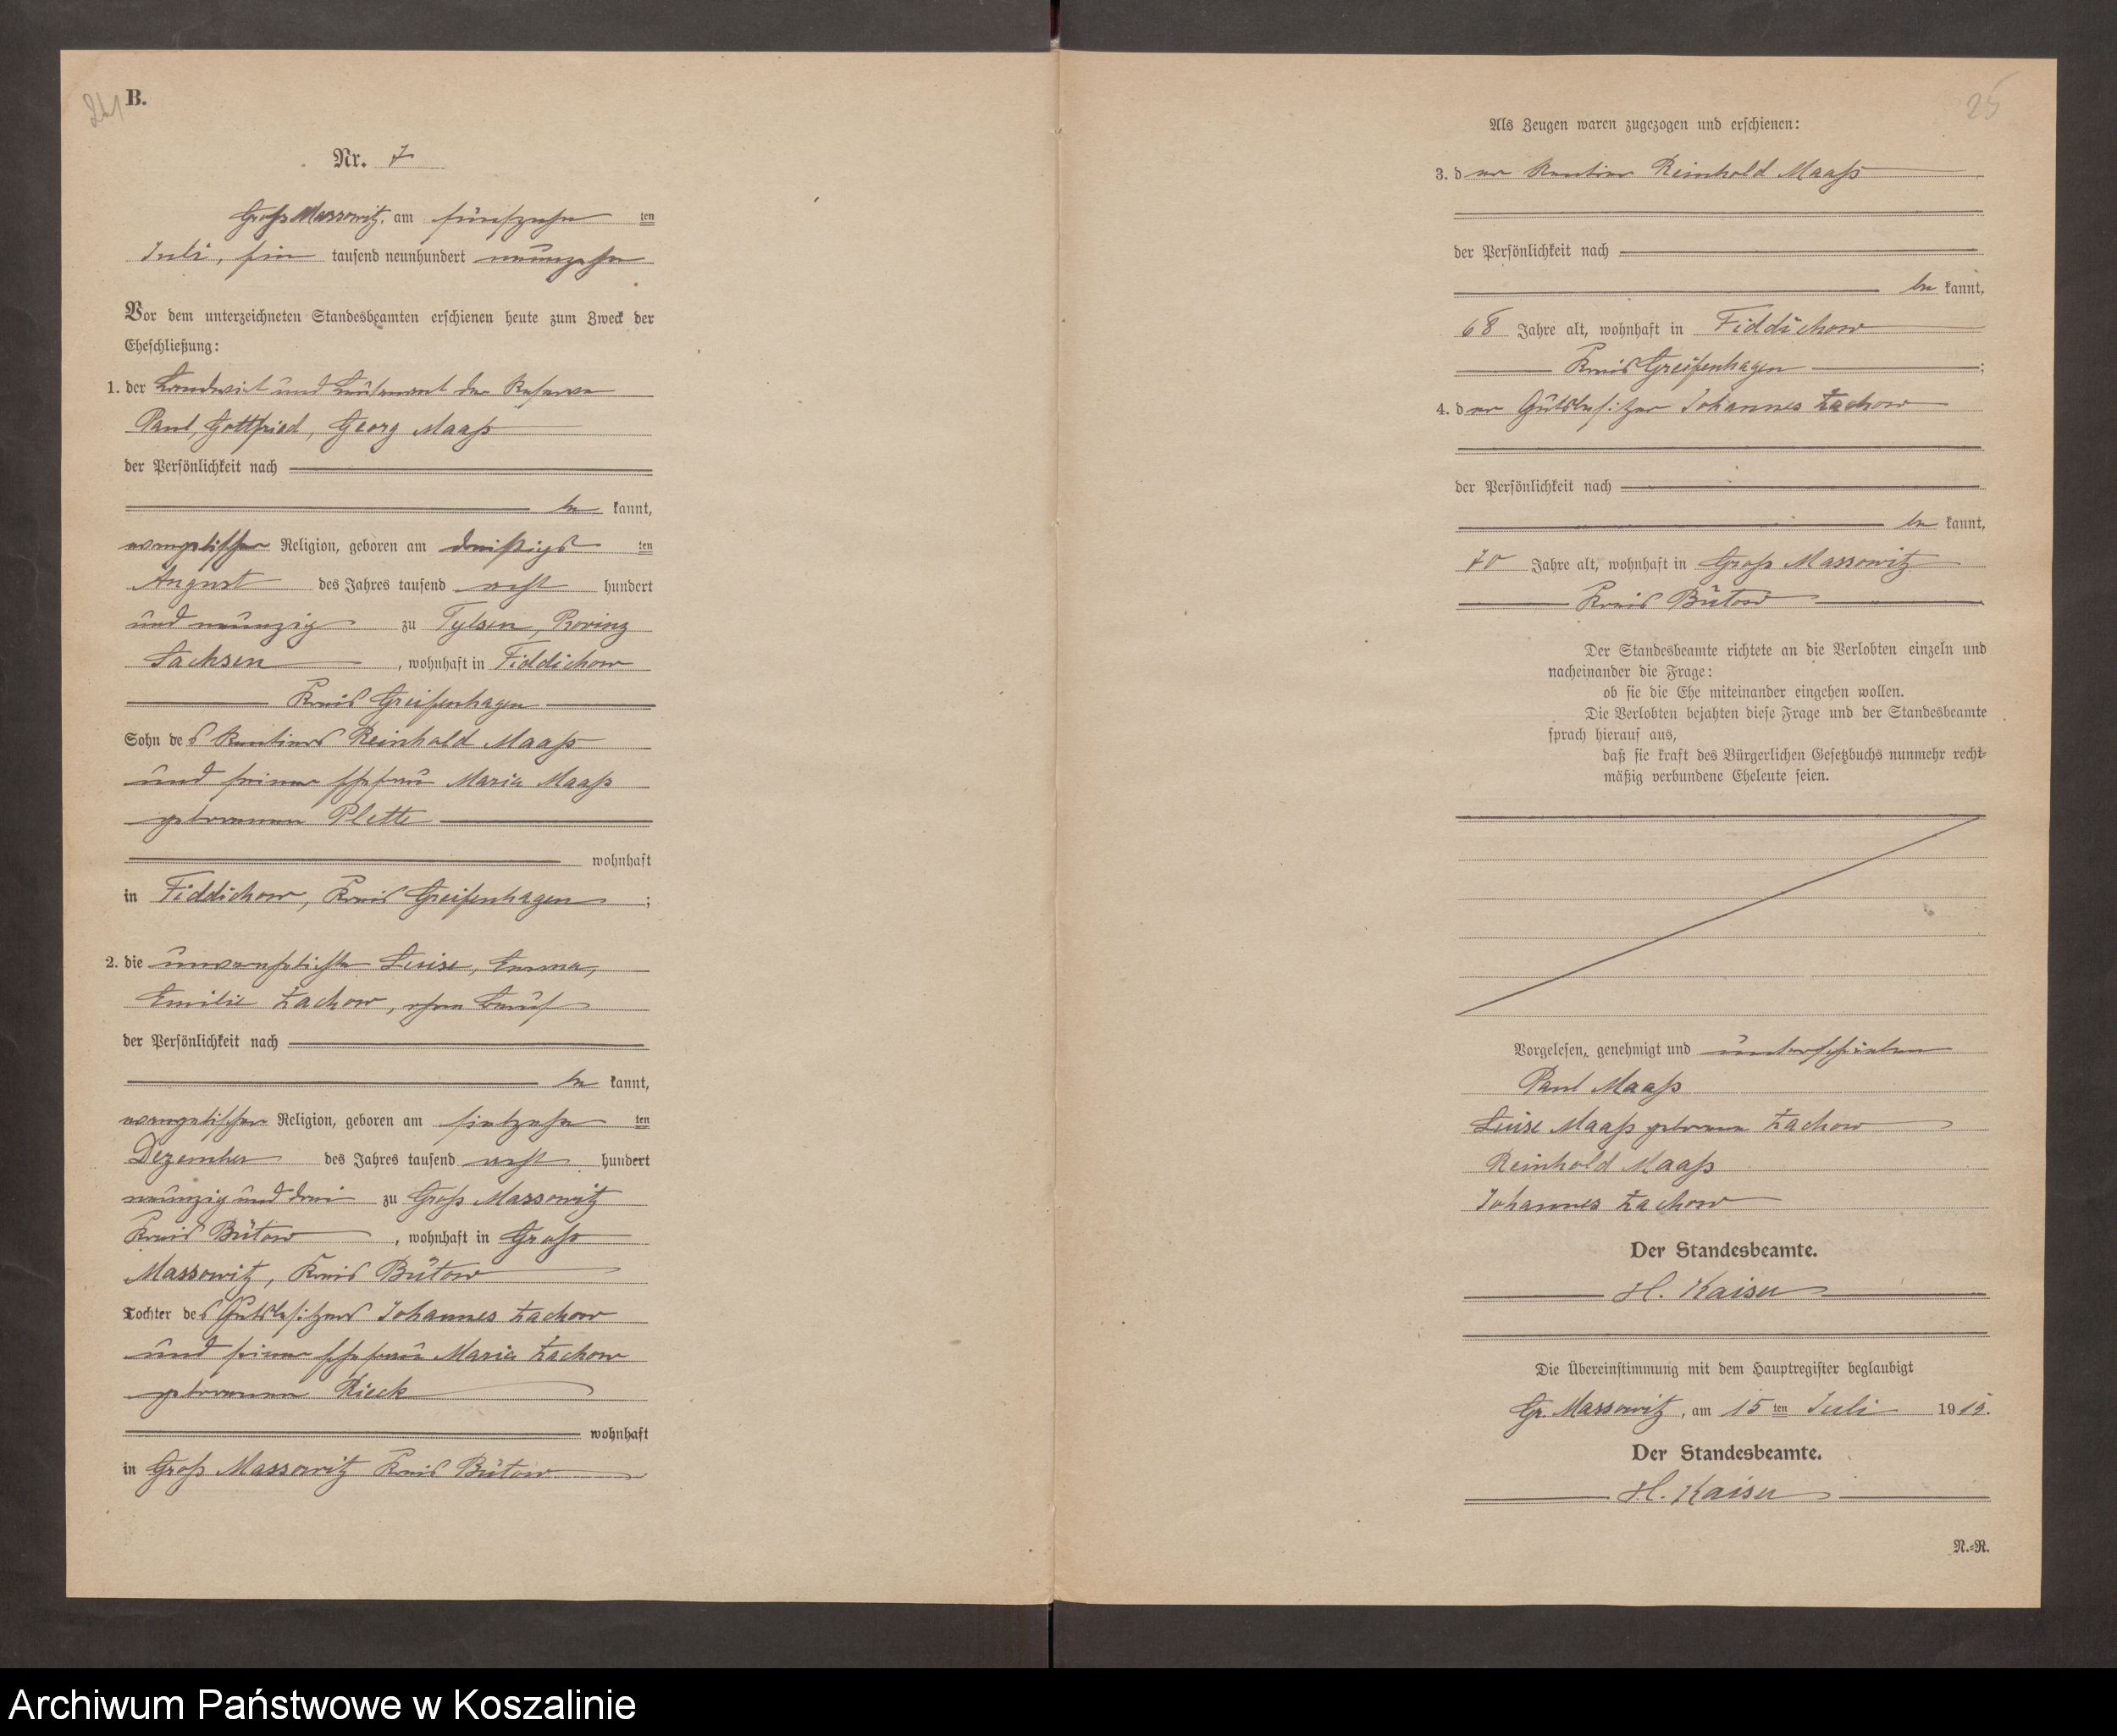 B.
Nr. 7
Groß Massowitz, am fünfzehn ten
Juli, ein tausend neunhundert neunzehn
Vor dem unterzeichneten Standesbeamten erschienen heute zum Zweck der
Eheschließung:
1. der Landwirt und Leutenant der Reserve
Paul, Gottfried, Georg Maaß
der Persönlichkeit nach
be kannt,
evangelischer Religion, geboren am dreißigs ten
August des Jahres tausend acht hundert
und neunzig zu Tylsen, Provinz
Sachsen, wohnhaft in Fiddichow
Kreis Greifenhagen
Sohn des Rentiers Reinhold Maaß
und seiner Ehefrau Maria Maaß
geborenen Plette
wohnhaft
in Fiddichow, Kreis Greifenhagen;
2. die unverehelichte Luise, Emma,
Emilie Zachow, ohne Beruf
der Persönlichkeit nach
be kannt,
evangelischer Religion, geboren am siebzehn ten
Dezember des Jahres tausend acht hundert
neunzig und drei zu Groß Massowitz
Kreis Bütow, wohnhaft in Groß
Massowitz, Kreis Bütow
Tochter des Gutsbesitzers Johannes Zachow
und seiner Ehefrau Maria Zachow
geborenen Rieck
wohnhaft
in Groß Massowitz Kreis Bütow
25
Als Zeugen waren zugezogen und erschienen:
3. der Rentier Reinhold Maaß
der Persönlichkeit nach
be kannt,
68 Jahre alt, wohnhaft in Fiddichow
Kreis Greifenhagen;
4. der Gutsbesitzer Johannes Zachow
der Persönlichkeit nach
be kannt,
70 Jahre alt, wohnhaft in Groß Massowitz
Kreis Bütow
Der Standesbeamte richtete an die Verlobten einzeln und
nacheinander die Frage:
ob sie die Ehe miteinander eingehen wollen.
Die Verlobten bejahten diese Frage und der Standesbeamte
sprach hierauf aus,
daß sie kraft des Bürgerlichen Gesetzbuchs nunmehr recht-
mäßig verbundene Eheleute seien.
Vorgelesen, genehmigt und unterschrieben
Paul Maaß
Luise Maaß geborene Zachow
Reinhold Maaß
Johannes Zachow
Der Standesbeamte.
H. Kaiser
Die Übereinstimmung mit dem Hauptregister beglaubigt
Gr. Massowitz, am 15 ten Juli 1919.
Der Standesbeamte.
H. Kaiser
N.-R.
Archiwum Państwowe w Koszalinie